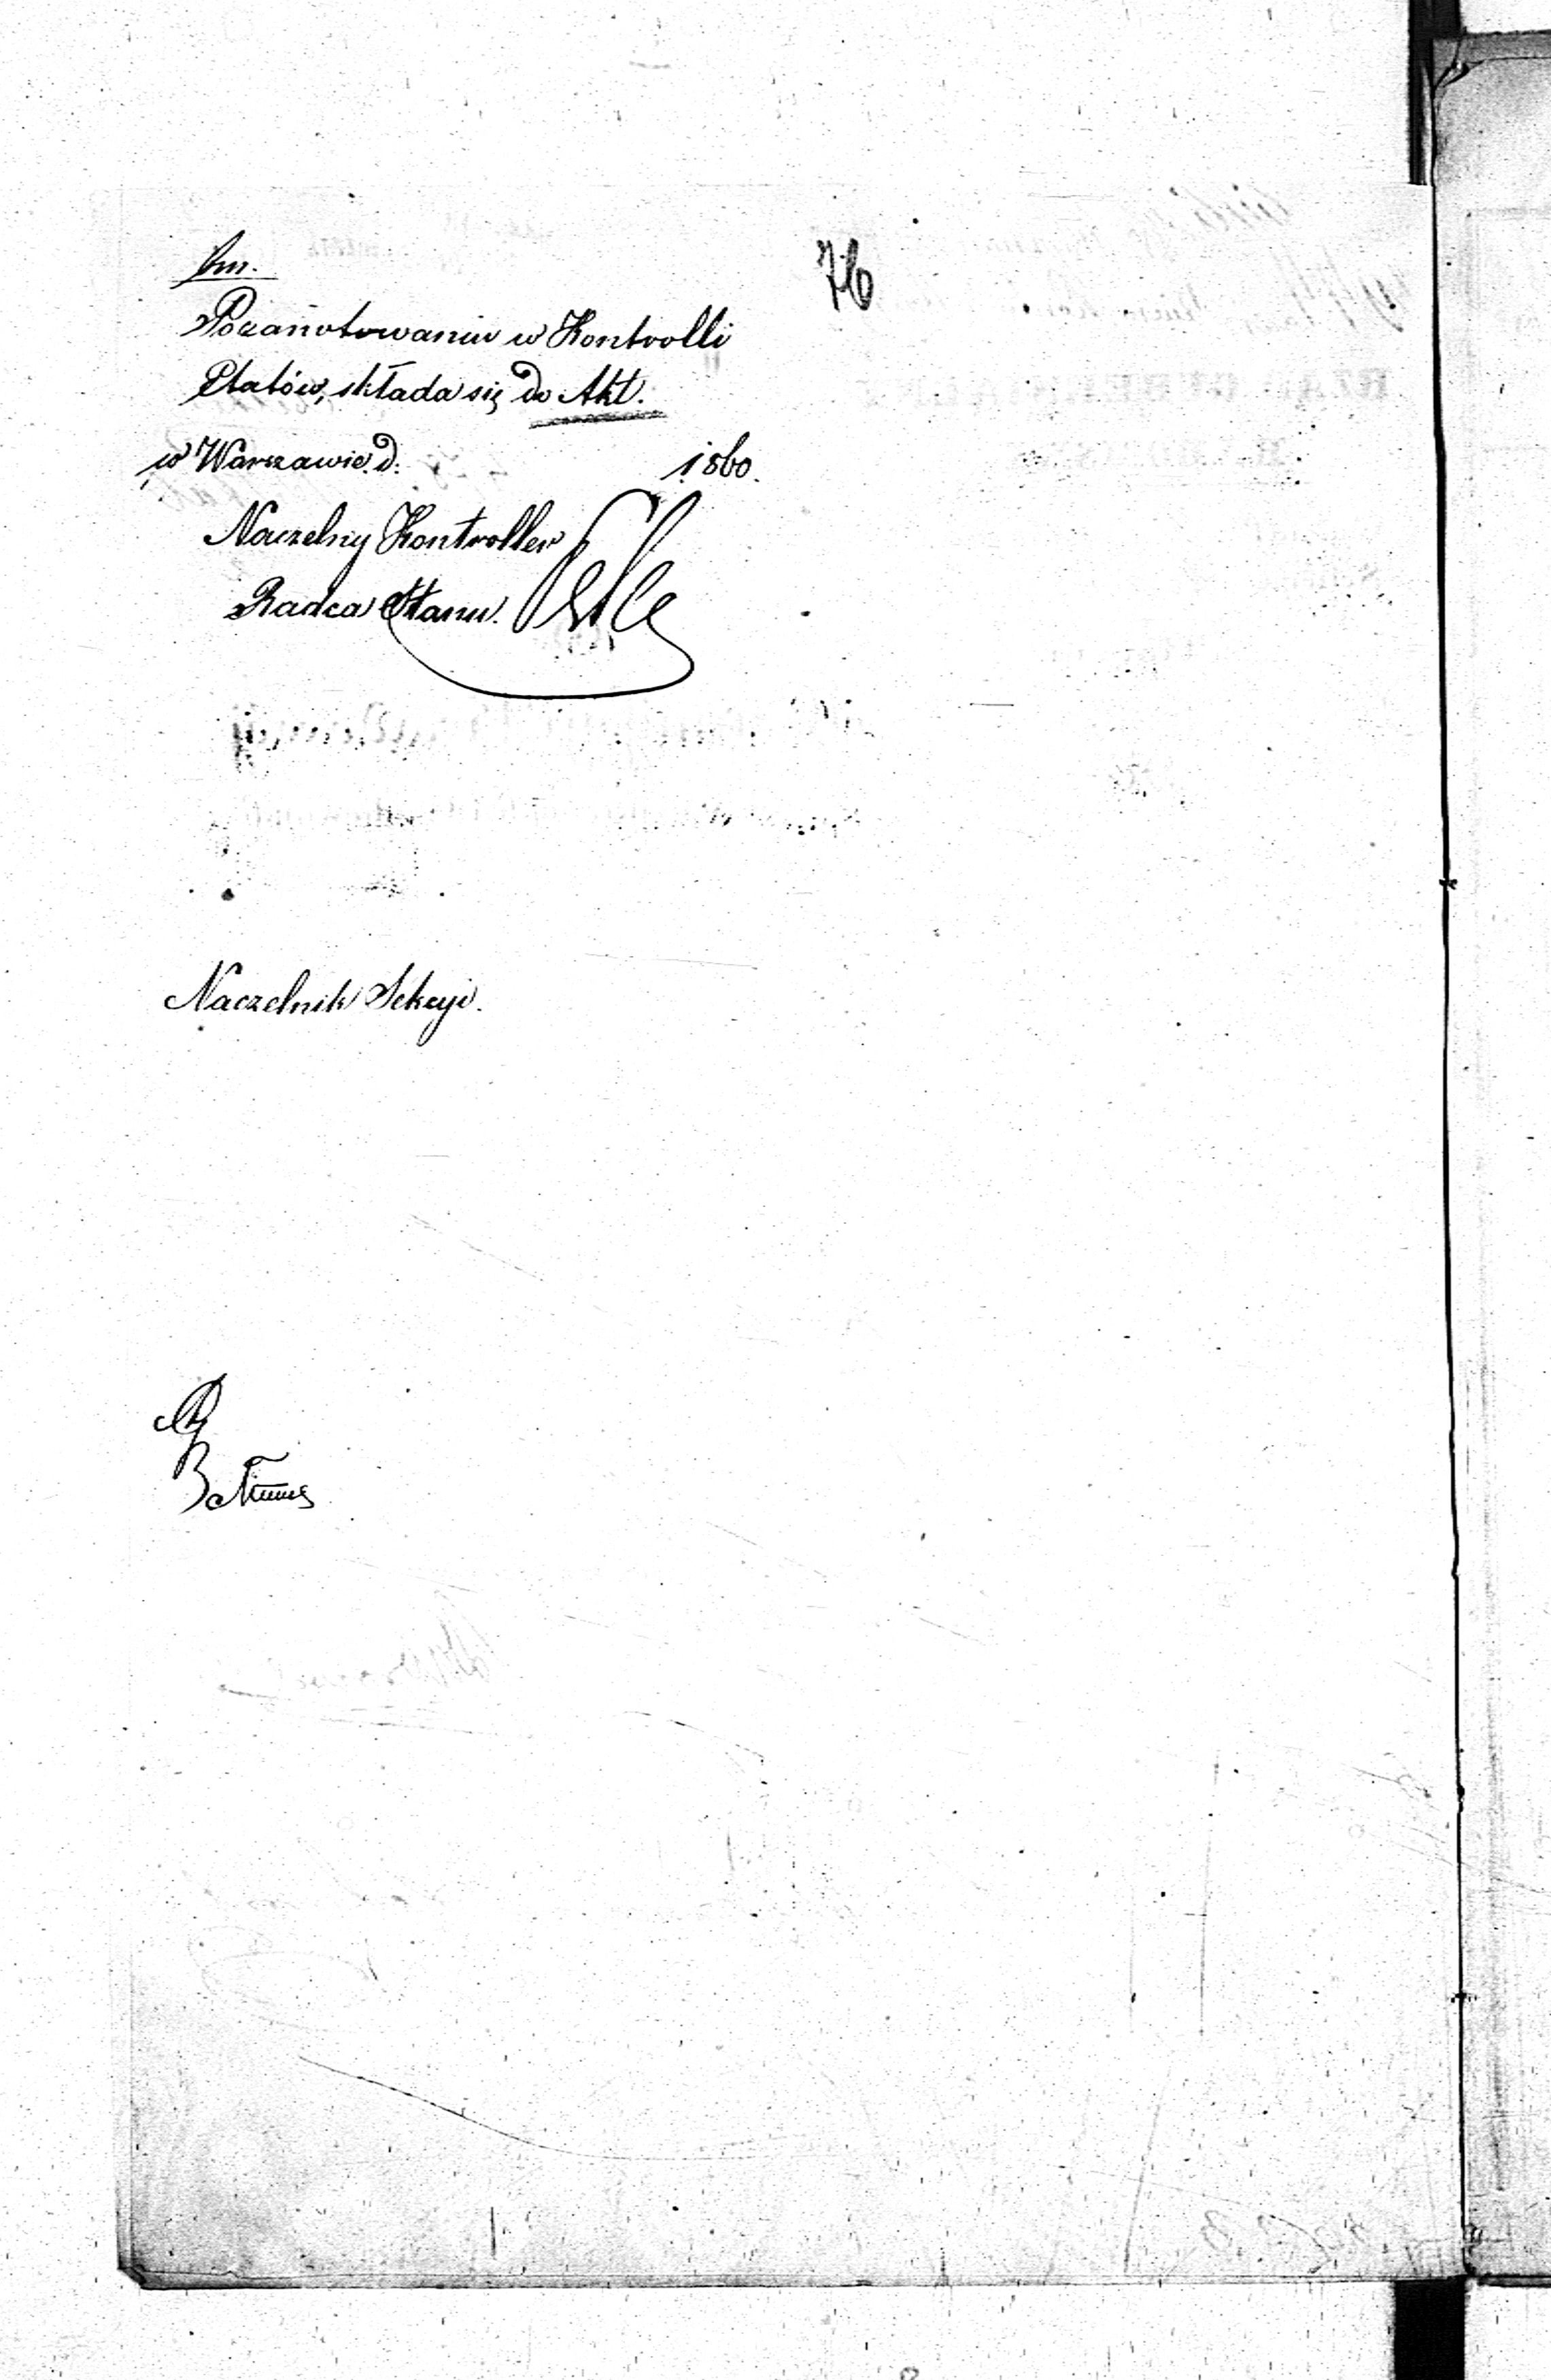 76
Po zanotowaniu w Kontrolli
Etatów, składa się do Akt.
w Warszawie d. 1860.
Naczelny Kontroller
Radca Stanu.
Naczelnik Sekcyi.